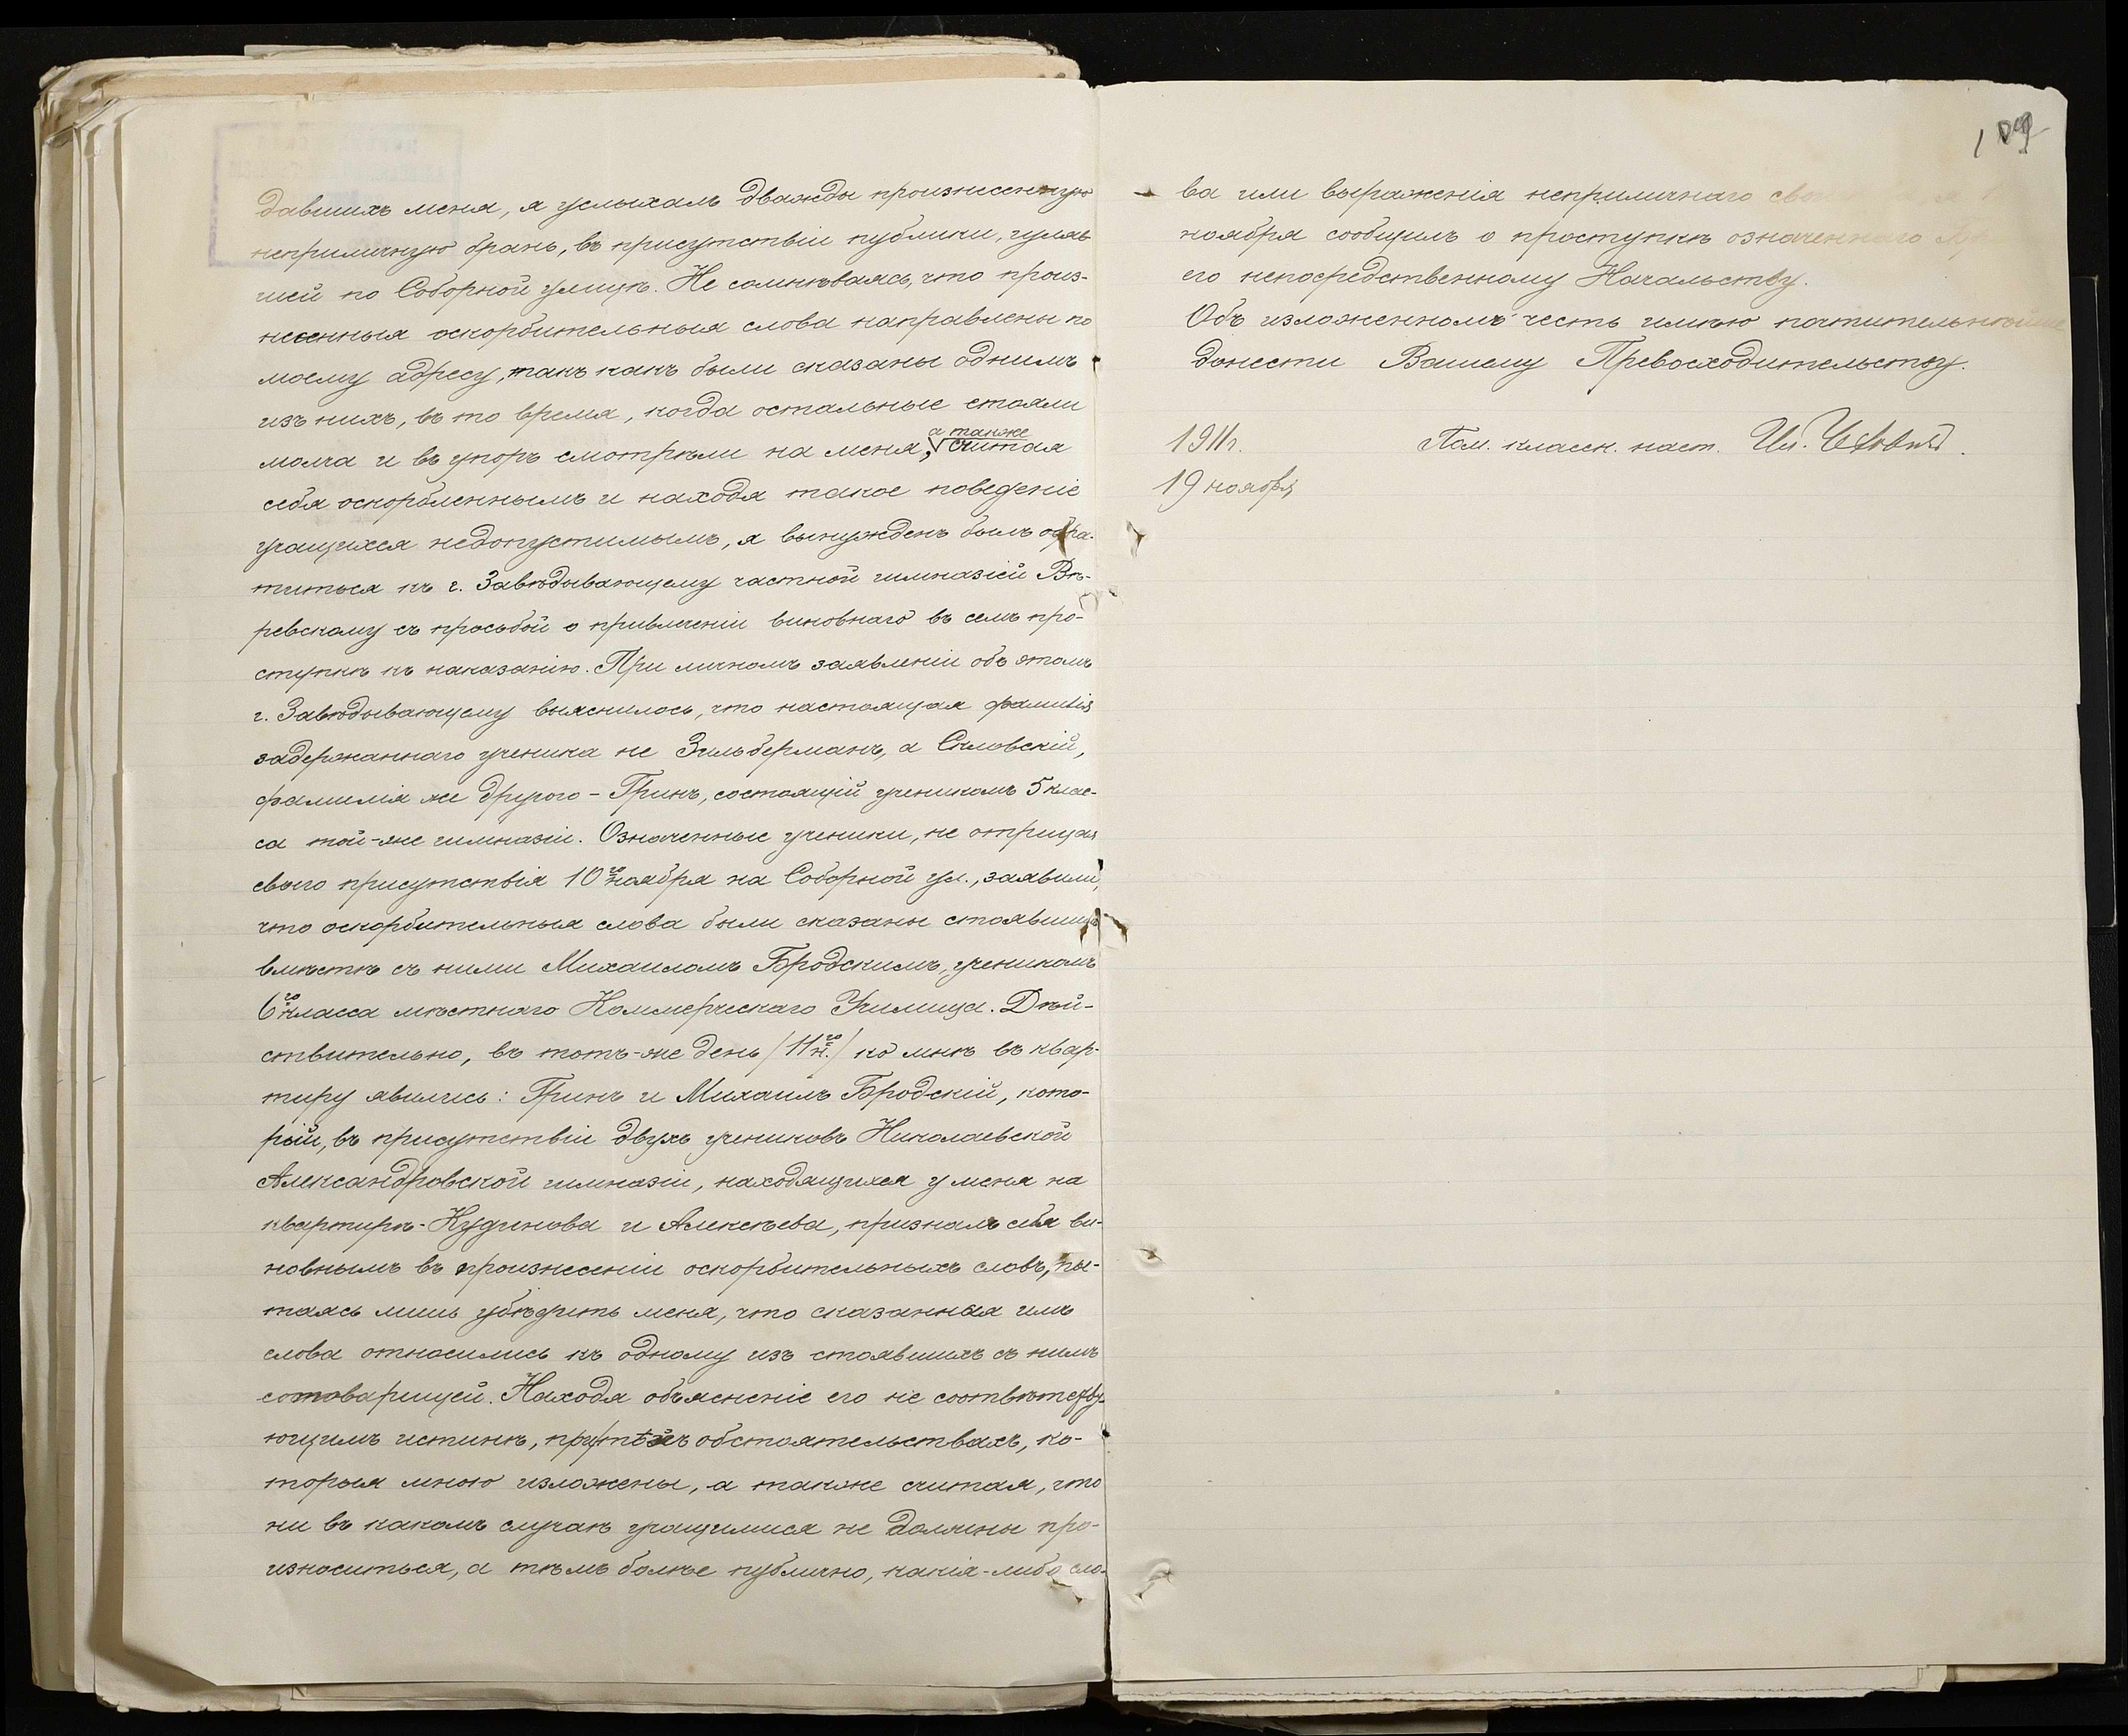 давшихъ меня, я услыхалъ дважды произнесенную
неприличную брань, въ присутствіи публики, гуляв
шей по Соборной улицѣ. Не сомнѣваясь, что произ-
несенныя оскорбительныя слова направлены по
моему адресу, такъ какъ были сказаны однимъ
изъ нихъ, въ то время, когда остальные стояли
молча и въ упоръ смотрѣли на меня, а также считая
себя оскорбленнымъ и находя такое поведеніе
учащихся недопустимымъ, я вынужденъ былъ обра-
титься къ г. Завѣдывающему частной гимназіей Вѣ-
ревскому съ просьбой о привлеченіи виновнаго въ семъ про-
ступкѣ къ наказанію. При личномъ заявленіи объ этомъ
г. Завѣдывающему выяснилось, что настоящая фамилія
задержаннаго ученика не Зильберманъ, а
фамилія же другого - Гринъ, состоящій ученикомъ 5 клас-
са той-же гимназіи. Означенные ученики, не отрицая
своего присутствія 10го ноября на Соборной ул., заявили,
что оскорбительныя слова были сказаны стоявшимъ
вмѣстѣ съ ними Михаиломъ Бродскимъ, ученикомъ
6го класса мѣстнаго Коммерческаго Училища. Дѣй-
ствительно, въ тотъ-же день /11го н./ ко мнѣ въ квар-
тиру явились: Гринъ и Михаилъ Бродскій, кото-
рый, въ присутствіи двухъ учениковъ Николаевской
Александровской гимназіи, находящихся у меня на
квартирѣ - Кудинова и Алексѣева, призналъ себя ви-
новнымъ въ произнесеніи оскорбительныхъ словъ, пы-
таясь лишь убѣдить меня, что сказанныя имъ
слова относились къ одному изъ стоявшихъ съ нимъ
сотоварищей. Находя объясненіе его не соотвѣтству-
ющимъ истинѣ, при тѣхъ обстоятельствахъ, ко-
торыя мною изложены, а также считая, что
ни въ какомъ случаѣ учащимися не должны про-
износиться, а тѣмъ болѣе публично, какія-либо сло-
109
ва или выраженія неприличнаго
ноября сообщилъ о проступкѣ означеннаго
его непосредственному Начальству.
Объ изложенномъ честь имѣю почтительнѣйше
донести Вашему Превосходительству.
1911 г. Пом. классн. наст.
19 ноября